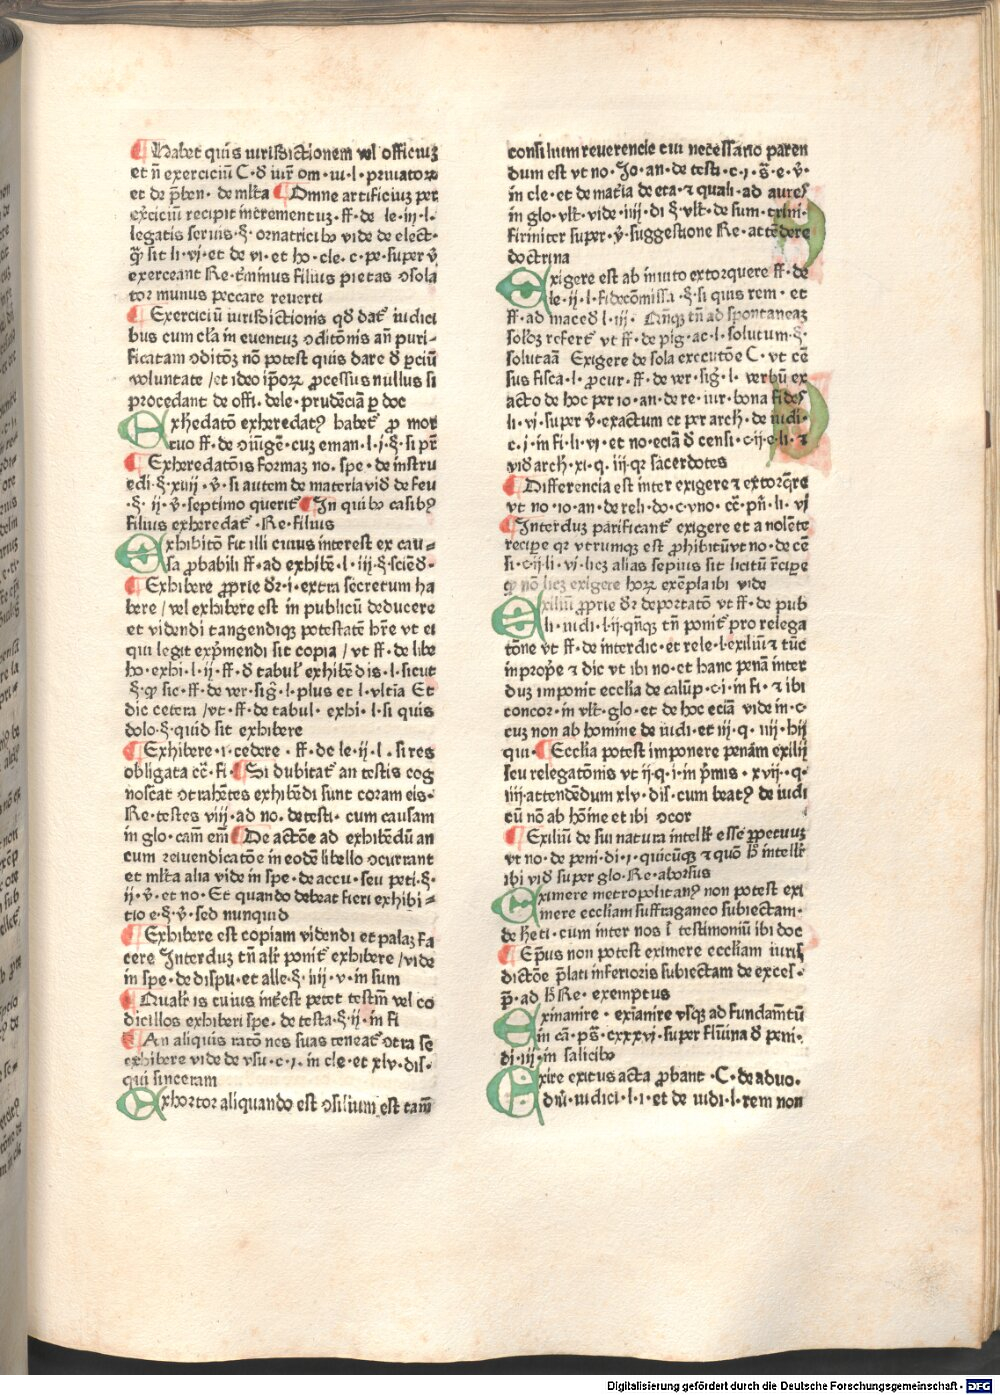 Habet quis iurisdictionem vel officiuz
et n̄ exerciciū C·d̄ iur̄ om·iu·l·priuatorꝝ
et de p̄ben·de ml̄ta Omne artificiuz per
exerciciū recipit incrementuz·ff·de·le·iij·l·
legatis seruis·§·ornatricibꝰ vide de elect·
q̄ sit li·vi·et de vi·et ho·cle·c·pe·super v̄
exerceant Re·t̄minus filius pietas ꝯsola
tor munus peccare reuerti
Exerciciū iurisdictionis qd̄ dat᷑ iudici
bus cum cl̄a in euentuz ꝯditōnis an̄ puri-
ficatam ꝯditōꝫ nō potest quis dare d̄ ꝑciū
voluntate /et ideo ip̄oꝝ ꝓcessus nullus si
procedant de offi·dele·prudēciā ꝑ doc
Exhedatō exheredatꝰ habet᷑ ꝓ mor
tuo ff·de ꝯiūge·cuz eman·l·j·§·si pr̄
Exheredatōis formaꝫ no·spe·de instru
edi·§·xiiij·v̄·si autem de materia vid̄ de feu
·§·ij·v̄·septimo querit᷑ In quibꝰ casibꝰ
filius exheredat᷑·Re·filius
Exhibitō fit illi cuius interest ex cau-
sa ꝓbabili ff·ad exhibē·l·iij·§·sciēd·
Exhibere ꝓprie dr̄·i·extra secretum ha
bere /vel exhibere est in publicū deducere
et videndi tangendiqꝫ potestatē hr̄e vt ei
qui legit exp̄mendi sit copia /vt ff·de libe
ho·exhi·l·ij·ff·d̄ tabul᷑ exhibēdis·l·sicut
§·ꝙ sic·ff·de ver·siḡ·l·plus et l·vltia Et
dic cetera /vt·ff·de tabul·exhi·l·si quis
dolo·§·quid sit exhibere
Exhibere·i·cedere·ff·de le·ij·l·si res
obligata cc̄·fi· Si dubitat᷑ an testis cog
noscat ꝯtrahētes exhibēdi sunt coram eis·
Re·testes viij·ad no·de testi·cum causam
in glo·cam̄ em̄ De actōe ad exhibēdū an
cum reiuendicatōe in eodē libello ꝯcurrant
et ml̄ta alia vide in spe·de accu·seu peti·§·
ij·v̄·et no·Et quando debeat fieri exhibi-
tio e·§·v̄·sed nunquid
Exhibere est copiam videndi et palaꝫ fa
cere Interduꝫ tn̄ alr̄ ponit᷑ exhibere /vide
in spe·de dispu·et alle·§·iiij·v·in sum
Qualr̄ is cuius int̄est petet testm̄ vel co
dicillos exhiberi spe·de testa·§·ij·in fi
An aliquis ratōnes suas teneat᷑ ꝯtra se
exhibere vide de vsu·c·i·in cle·et xlv·dis·
qui sinceram
Exhortor aliquando est ꝯsilium est tam̄
consilium reuerencie cui necessario paren
dum est vt no·Jo·an·de testi·c·i·§·e·v̄·
in cle·et de mat̄ia de eta·⁊ quali·ad aures
in glo·vlt᷑·vide·iiij·di §·vlt᷑·de sum·trini·
firmiter super·v̄·suggestione Re·attēdere
doctrina
Exigere est ab inuito extorquere ff·de
le·ij·l·fidecōmissa·§·si quis rem·et
ff·ad maced̄·l·iij· Qn̄qꝫ tn̄ ad spontaneaꝫ
solōꝫ refert᷑ vt ff·de pig·ac·l·solutum·§·
solutaā Exigere de sola executōe C·vt cē
sus fisca·l·ꝓcur·ff·de ver·siḡ·l·verbū ex
acto de hoc per io·an·de re·iur·bona fides
li·vi·super v̄·exactum et per arch·de iudi·
c·i·in fi·li·vi·et no·eciā d̄ censi·c·ij·e·li·⁊
vid̄ arch·xi·q·iij·qr sacerdotes
Differencia est inter exigere ⁊ extorq̄re
vt no·io·an·de reli·do·c·vno·cc̄·pn̄·li·vi
Interduꝫ parificant᷑ exigere et a nolēte
recipe qr vtrumqꝫ est ꝓhibitū vt no·de cē
si·c·ij·li·vi·licꝫ alias sepius sit licitū r̄cipe
ꝙ nō licꝫ exigere hoꝝ exēpla ibi vide
Exiliū ꝓprie dr̄ deportatō vt ff·de pub
li·iudi·l·ij·qn̄qꝫ tn̄ ponit᷑ pro relega
tōne vt ff·de interdic·et rele·l·exiliū ⁊ tūc
inprop̄e ⁊ dic vt ibi no·et hanc penā inter
duꝫ imponit eccl̄ia de calūp·c·i·in fi·⁊ ibi
concor·in vlt᷑·glo·et de hoc eciā vide in·c·
cuꝫ non ab homine de iudi·et iij·q·iiij·hij
qui· Ecclia potest imponere penām exilij
seu relegatōnis vt ij·q·i·in p̄mis·xvij·q·
iiij·attendēdum xlv·dis·cum beatꝰ de iudi
cū nō ab hōine et ibi ꝯcor
Exiliū de sui natura intellr̄ esse ꝑpetuuꝫ
vt no·de peni·di·i·quicūqꝫ ⁊ quō hꝰ intellr̄
ibi vid̄ super glo·Re·aborsus
Eximere metropolitanꝰ non potest exi
mere eccliam suffraganeo subiectam·
de heti·cum inter nos l̄ testimoniū ibi doc
Ep̄us non potest eximere eccliam iuris
dictōe p̄lati inferioris subiectam de exces-
p̄·ad hꝰ Re·exemptus
Exinanire·exīanire vsqꝫ ad fundam̄tū
in cā·ps̄·cxxxvi·super flūina d̄ peni·
di·iij·in salicibꝰ
Exire exitus acta ꝓbant·C·de aduo·
diū·iudici·l·i·et de iudi·l·rem non
Digitalisierung gefördert durch die Deutsche Forschungsgemeinschaft - DFG